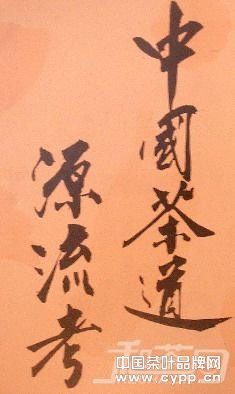 中國茶道
源流考
中国茶叶品牌网
www.cypp.cn